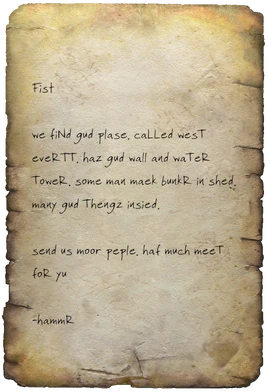 Fist
we fiNd gud plase, caLLed wesT
eveRTT, haz gud wall and waTeR
ToweR, some man maek bunkR in shed,
many gud Thengz insied,
send us moor peple, haf much meeT
foR yu
-hammR